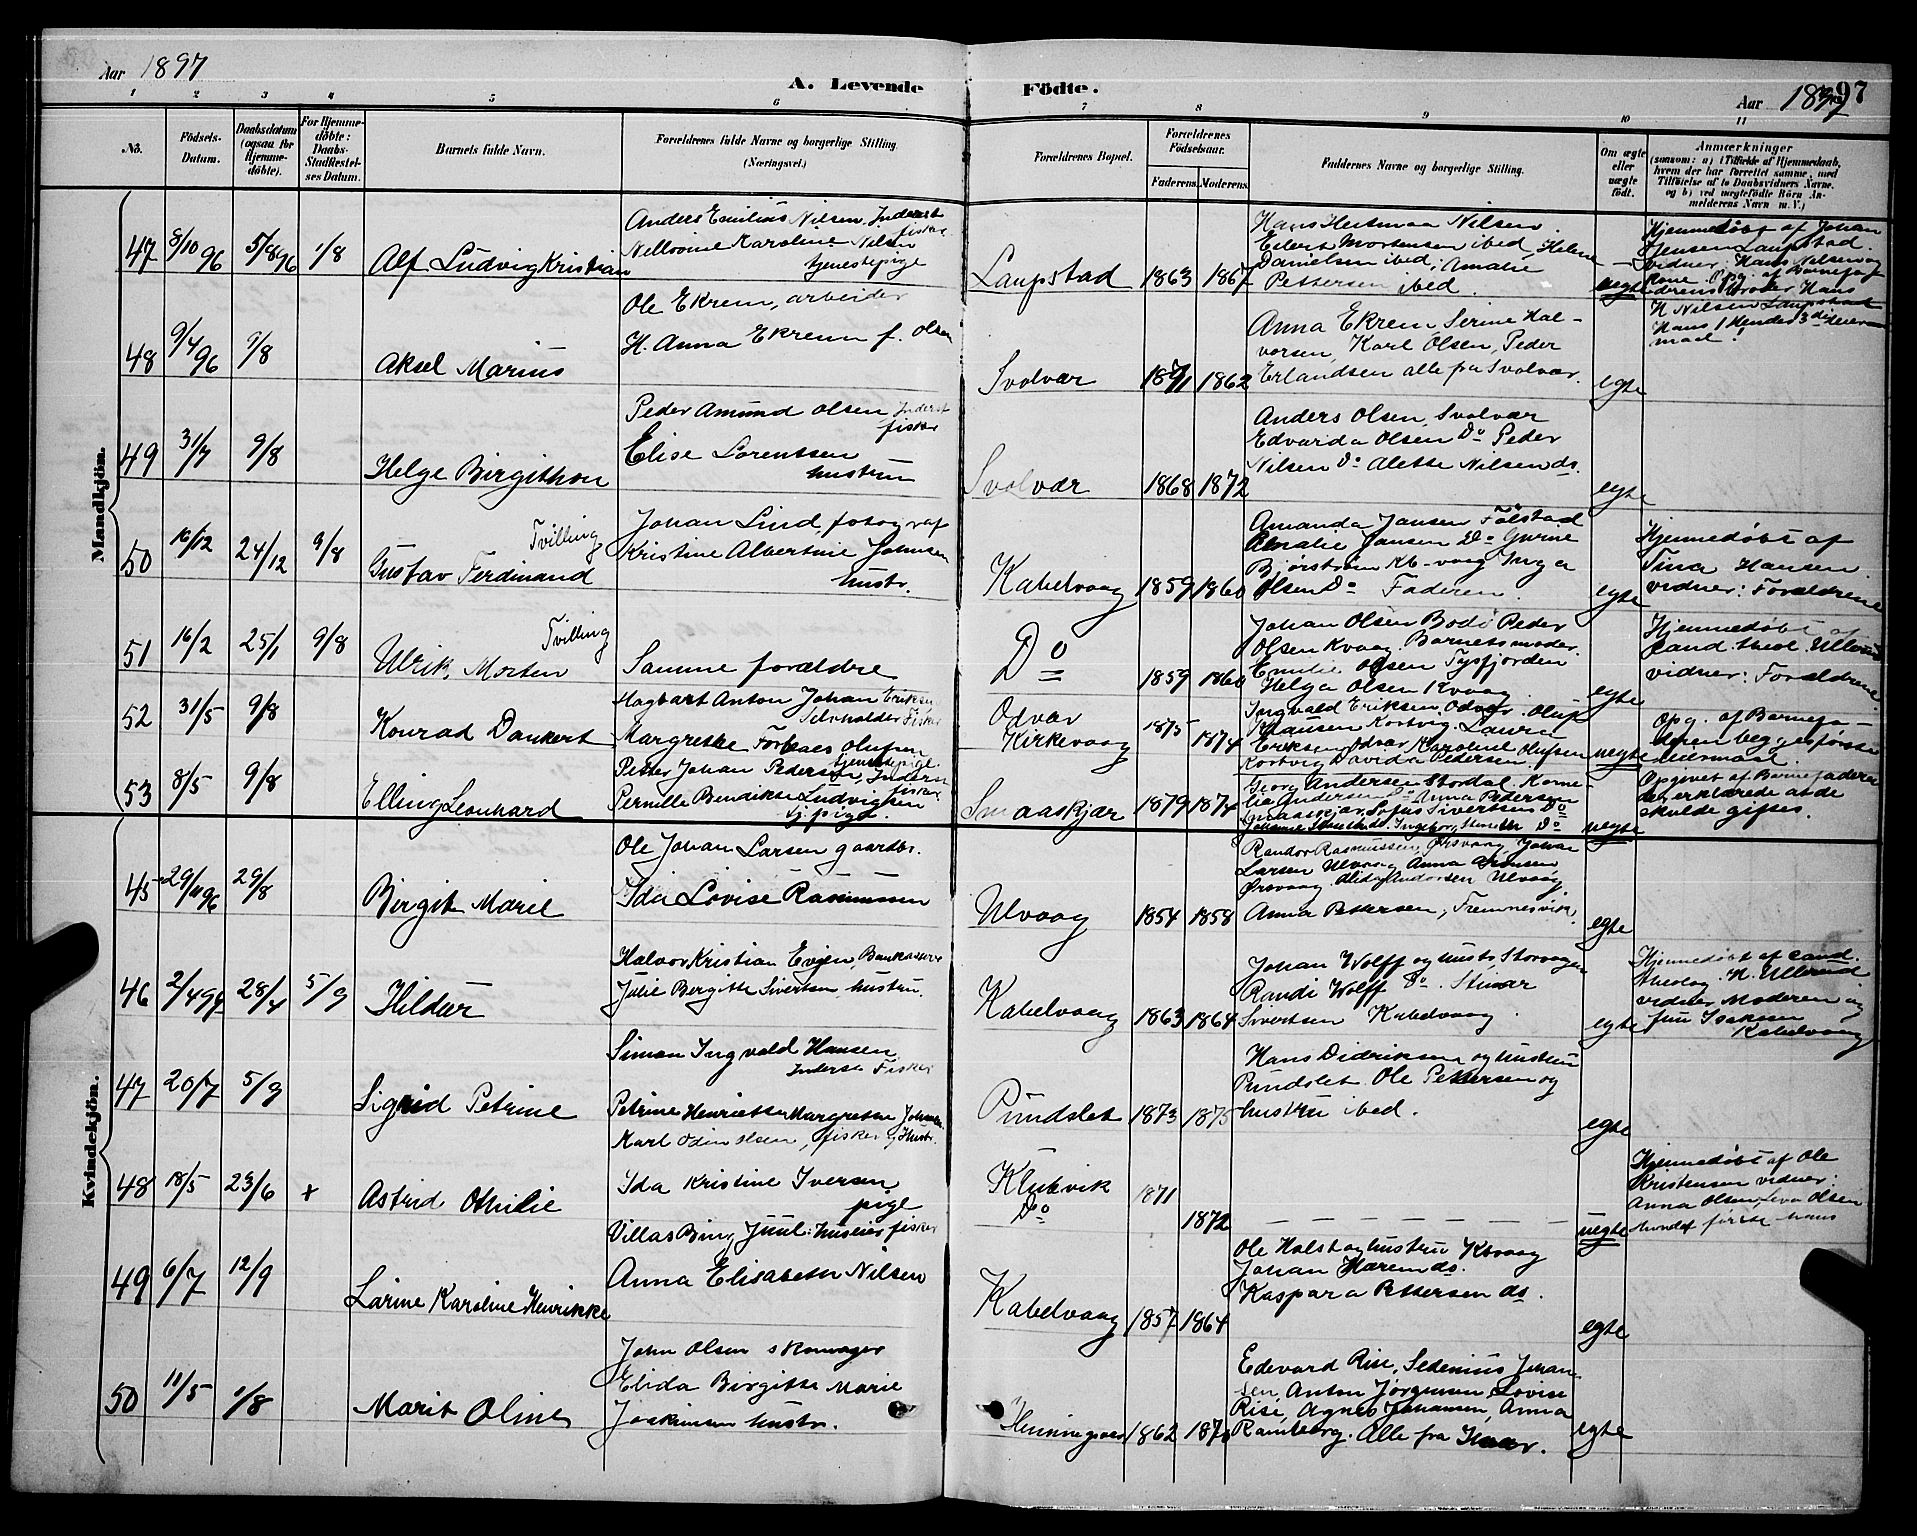 Aar 1897
A. Levende Födte.
Aar 1897
97
1 2 3 4 5 6 7 8 9 10 11
No.
Födsels-Datum.
Daabsdatum (ogsaa for Hjemme-døbte).
For Hjemme-døbte: Daabs-Stadfæstel-ses Datum.
Barnets fulde Navn.
Forældrenes fulde Navne og borgerlige Stilling. (Næringsvei.)
Forældrenes Bopæl.
Forældrenes Födselsaar.
Faderens. Moderens.
Faddernes Navne og borgerlige Stilling.
Om ægte eller uægte födt.
Anmærkninger (saasom: a) i Tilfælde af Hjemmedaab, hvem der har forrettet samme, med Tilföielse af to Daabsvidners Navne, og b) ved uægtefödte Börn An-melderens Navn m. V.)
Mandkjön.
47 8/10 96 5/8 96 1/8 Alf Ludvig Kristian
Anders Emilius Nilsen, Inderst fisker
Karoline Nilsen tjenestepige
Laupstad 1863 1867
Hans Nilsen.
Eilert Mortensen ibed, Helene
Danielsen ibed, Amalie
Pettersen ibed.
uegte
Hjemmedøbt af Johan
Jensen Laupstad.
vidner: Hans Nilsen og
Kone. Opg. af Barnefa-
derens Broder Hans
H Nilsen Laupstad
Hans / Hendes 3die Leier-
maal!
48 9/4 96 9/8 Aksel Marius
Ole Ekrem, arbeider
H. Anna Ekrem f. Olsen
Svolvær 1871 1862
Anna Ekrem, Serine Hal-
vorsen, Karl Olsen, Peder
Erlandsen alle fra Svolvær.
egte
49 31/7 9/8 Helge Birgithon
Peder Amund Olsen Inderst fisker
Elise Lorentsen hustru
Svolvær 1868 1872
Anders Olsen, Svolvær
Edvarda Olsen Do Peder
Nilsen Do Alette Nilsen ds.
egte
50 16/12 24/12 9/8 Tvilling
Gustav Ferdinand
Johan Lind, fotograf
Kristine Albertine Johnsen hustr.
Kabelvaag 1859 1860
Amanda Jansen Følstad
Amalie Jansen Do Gurine
Bjørstrøm Kb-vaag Inga
Olsen Do Faderen.
egte
Hjemmedøbt af
Tina Hansen.
vidner: Forældrene
51 16/2 25/1 9/8 Tvilling
Ulrik Morten
Samme forældre
Do 1859 1860
Johan Olsen Bodø Peder
Olsen Kvaag Barnets moder
Emilie Olsen Tysfjorden
Helga Olsen Kvaag.
egte
Hjemmedøbt af
Cand. theol. Ullerud
vidner: Forældrene.
52 31/5 9/8 Konrad Dankert
Hagbart Anton Johan Eriksen Selvholder Fisker
Margrethe Olufsen tjenestepige
Odvær
Kirkevaag 1875 1874
Ingvald Eriksen Odvær. Oluf
Klausen Kortvig. Laura
Eriksen Odvær Karoline Olufsen
Kortvig Davida Pedersen.
uegte
Opg. af Barnefa-
deren begges første
Leiermaal.
53 8/5 9/8 Elling Leonhard
Petter Johan Pedersen, Inderst fisker
Pernille Bendikte Ludvigsen tj. pige.
Smaaskjær 1879 1874
Georg Andersen Stordal. Korne-
lia Andersen Do Anna Pedersen
Smaaskjær, Sofus Sivertsen Do
uegte
Opgivet af Barnefaderen
der erklærede at de
skulde giftes.
Kvindekjön.
45 29/11 96 29/8 Birgit Marie
Ole Johan Larsen gaardbr.
Ida Lovise Rasmussen
Ulvaag 1854 1858
Randor Rasmussen, Ørsvaag, Johan
Larsen Ulvaag, Anna
Ørsvaag. Alida Andersen Ulvaag
Anna Pettersen,
egte
46 2/4 28/4 5/9 Hildur
Halvor Kristian Evjen,
Julie Bergitte Sivertsen, hustru.
Kabelvaag 1863 1864
Johan Wolff og hustr. Storvagen
Randi Wolff Do.
Sivertsen Kabelvaag.
egte
Hjemmedøbt af Cand.
theolog. H. Ullerud
vidner Moderen og
fru Isaksen
Kabelvaag
47 20/7 5/9 Sigrid Petrine
Simon Ingvald Hansen,
Inderst Fisker
Petrine Henriette Margrethe
Pundslet 1873 1875
Hans Didriksen og hustru
Pundslet. Ole Pettersen og
hustru ibed.
egte
48 18/5 23/6 + Astrid Othilie
Karl Odin Olsen, fisker
Ida Kristine Iversen pige
Klubvik 1871
Do 1872
uegte
Hjemmedøbt af Ole
Kristensen vidner:
Anna Olsen, Lova Olsen
49 6/7 12/9 Larine Karoline Henrikke
Villas Bing Juul: husieier fisker
Anna Elisabeth Nilsen
Kabelvaag 1857 1864
Ole Holst og hustru Kbvaag
Johan Harem ds.
Kaspara Pettersen ds.
egte
50 11/5 1/8 Marit Oline
John Olsen skomager
Elida Birgitte Marie
Joakimsen hustr.
Henningsvær 1862
Edevard Rise, Sedenius Johan-
sen, Anton Jørgensen, Lovise
Rise, Agnes Johansen, Anna
Ramberg. Alle fra Hvær.
egte